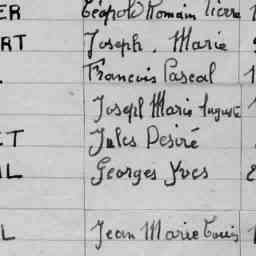 ER Léopold Romain Pierre
RT Joseph. Marie
Francois Pascal
Joseph Marie Auguste
ET Jules Desiré
IL Georges Yves
L Jean Marie Louis